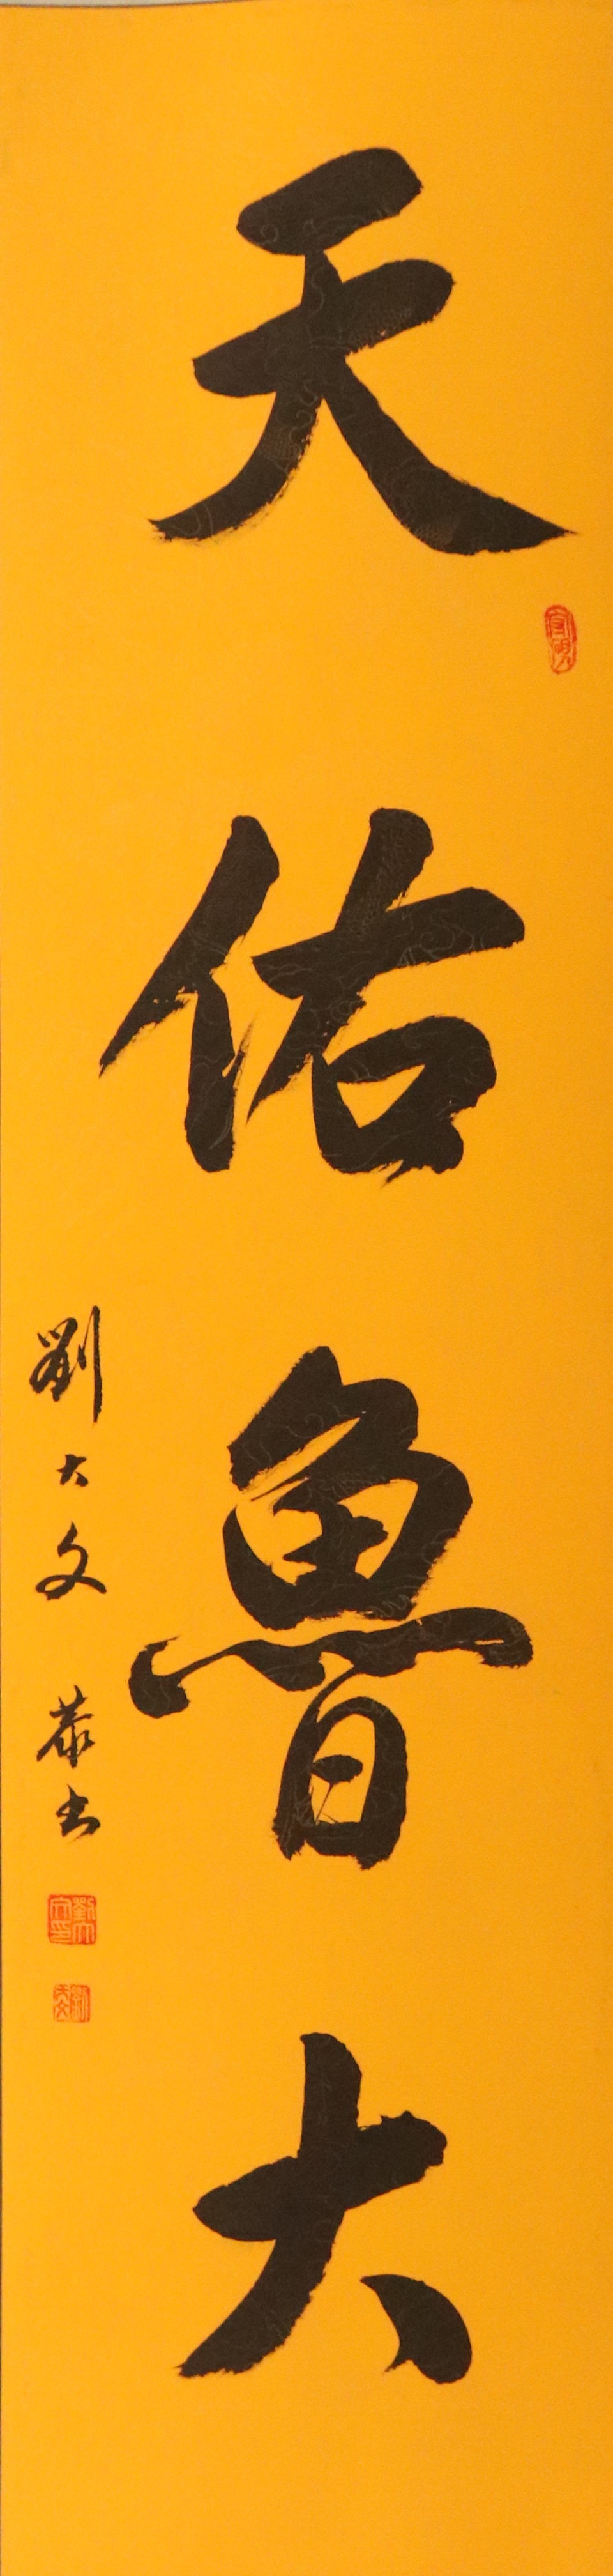 天佑魯大
劉大文 恭书